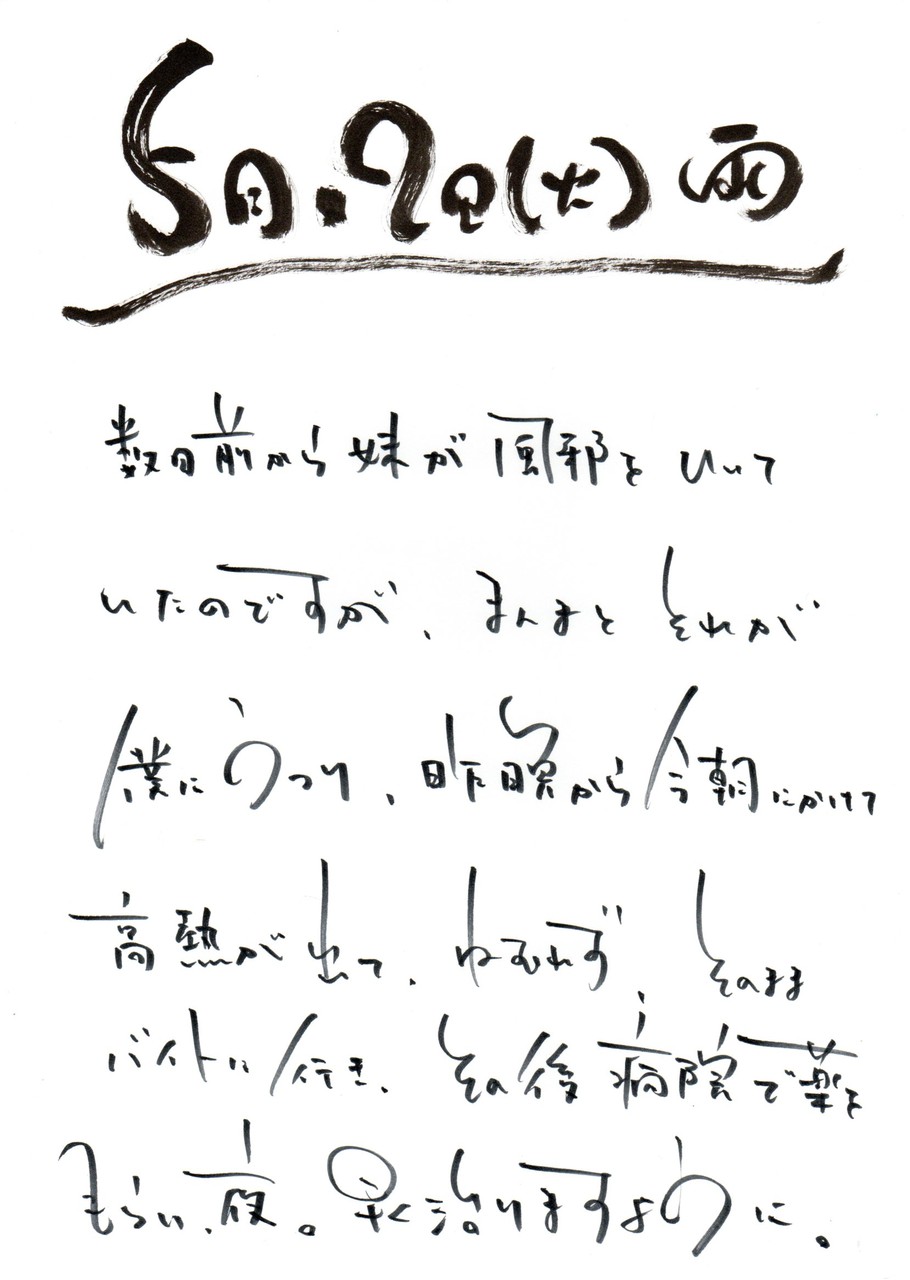 5月.7日(火)雨
数日前から妹が風邪をひいて
いたのですが、まんまとそれが
僕にうつり、昨晩から今朝にかけて
高熱が出て、ねむれず、そのまま
バイトに行き、その後病院で薬を
もらい、夜。早く治りますように。